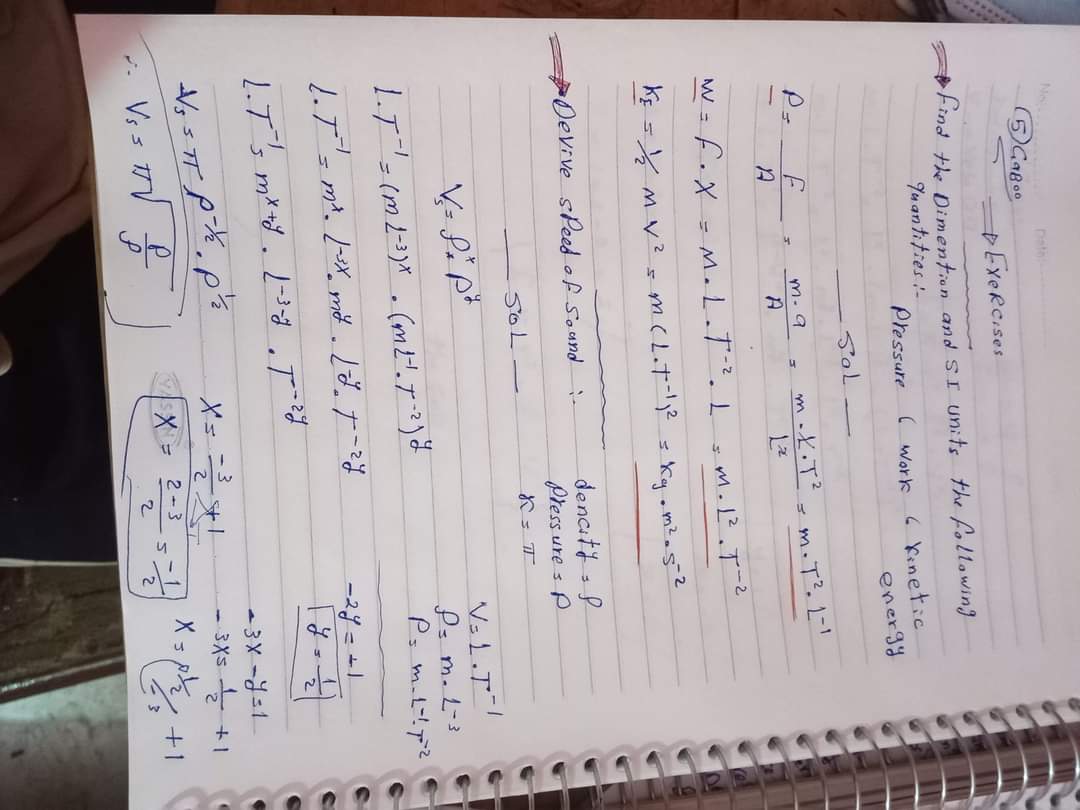 No:
Date:
(5) GaBoo
→ Exercises
→ Find the Dimention and SI units the following
quantities:- Pressure ( work ( Kinetic
energy
Sol
P = F/A = m·a/A = m·X·T²/L² = m·T²·L⁻¹
W = F·X = M·L·T⁻²·L = m·L²·T⁻²
K_E = ½ m v² = m (L·T⁻¹)² = Kg·m²·S⁻²
→ Devive speed of sound :- dencity = ρ
Pressure = P
K = π
SOL
V = L·T⁻¹
ρ = m·L⁻³
P = m·L⁻¹·T⁻²
Vs = ρˣ * Pʸ
L·T⁻¹ = (mL⁻³)ˣ · (mL⁻¹·T⁻²)ʸ
L·T⁻¹ = mˣ·L⁻³ˣ·mʸ·L⁻ʸ·T⁻²ʸ
-2y = +1
y = 1/2
L·T⁻¹ = m ˣ⁺ʸ · L⁻³⁻ʸ · T⁻²ʸ
-3X - y = 1
-3X = 1/2 + 1
Vs = π ρ⁻¹/² · P¹/²
X = -3/2 + 1
X = 2-3/2 = -1/2
∴ Vs = π √P/ρ
YASSIN